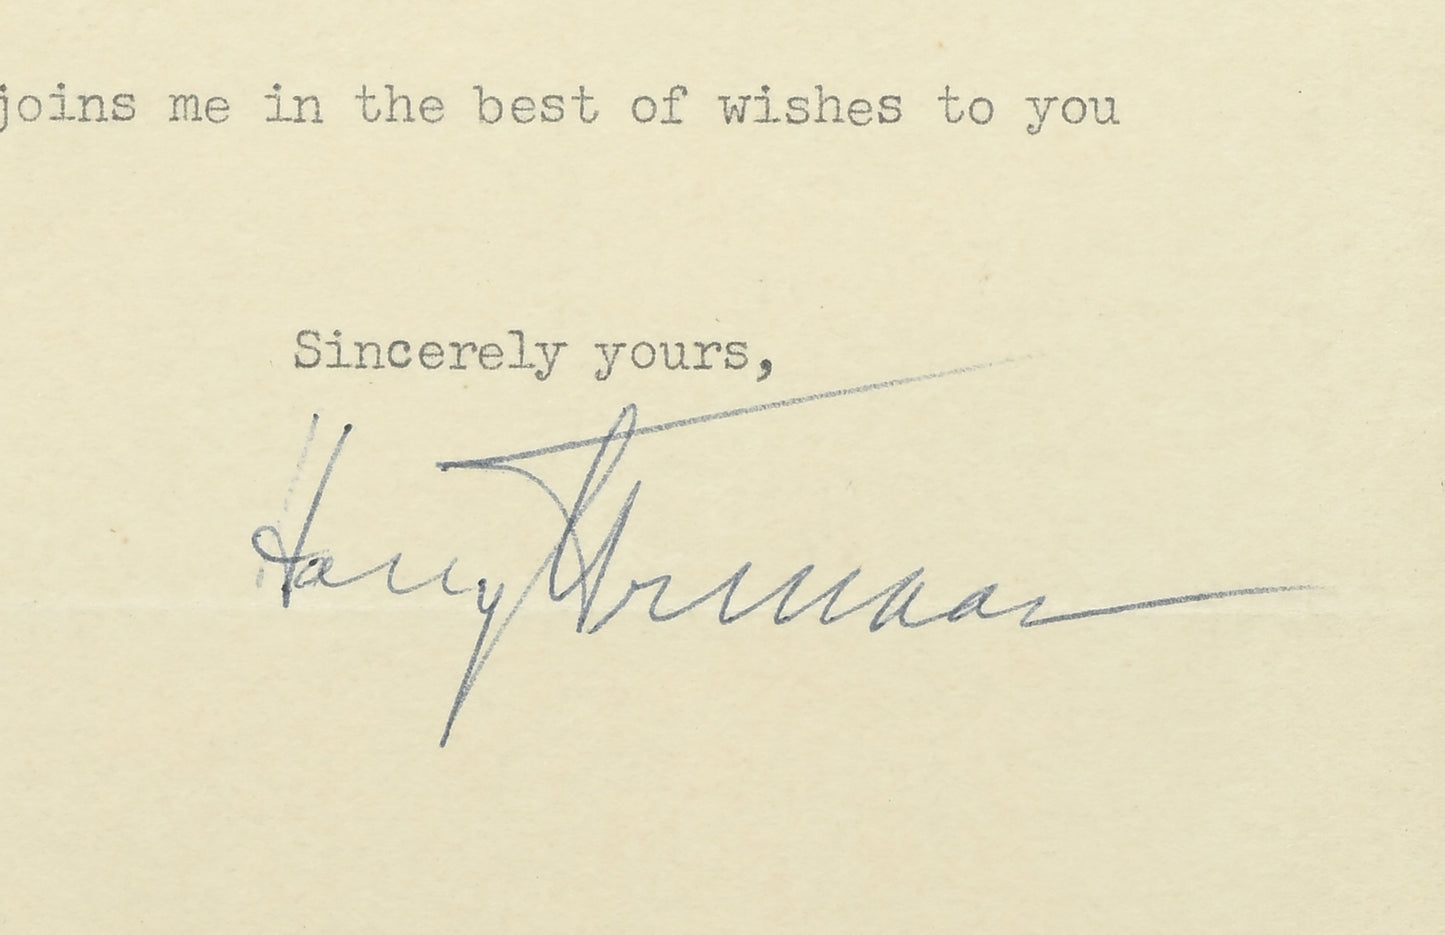 joins me in the best of wishes to you
Sincerely yours,
Harry Truman